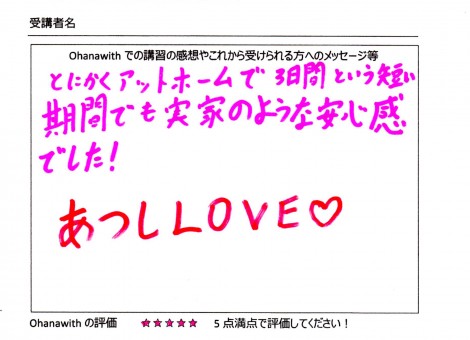 受講者名
Ohanawith での講習の感想やこれから受けられる方へのメッセージ等
とにかくアットホームで 3日間 という短い
期間でも実家のような安心感
でした!
あつしLOVE♡
Ohanawith の評価 ★★★★★ 5 点満点で評価してください!